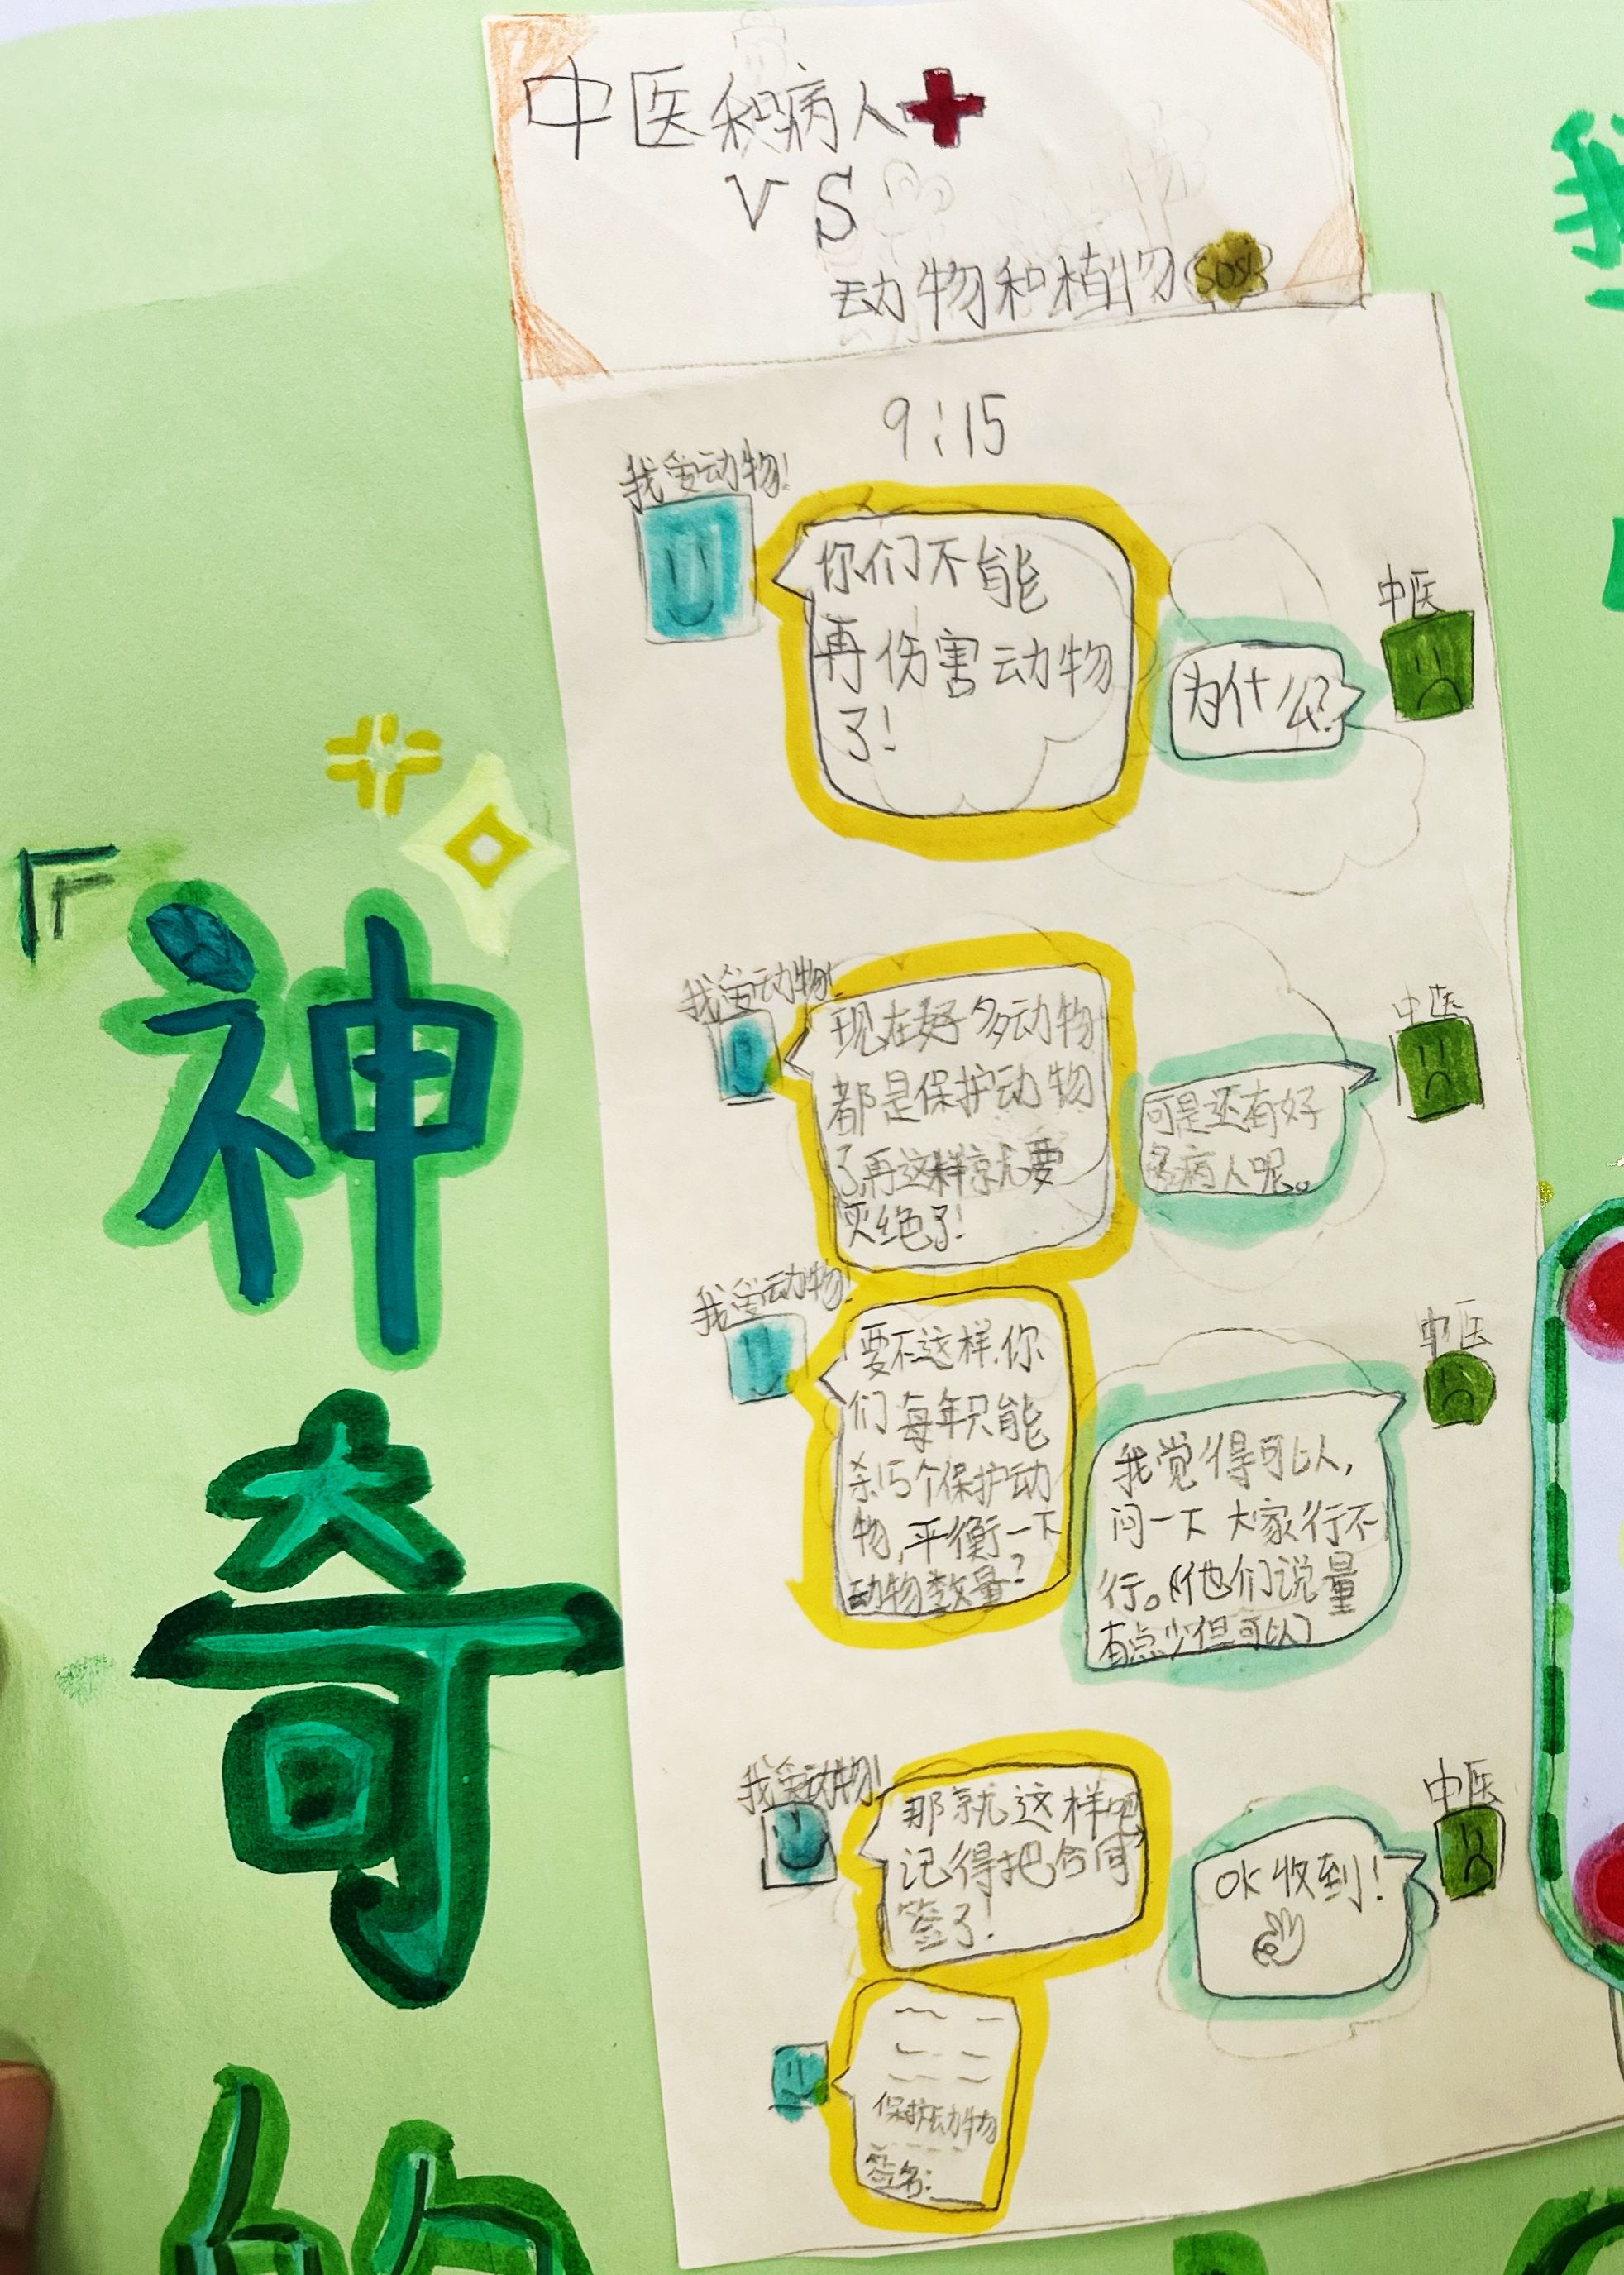 中医和病人
VS
动物和植物 SOS!
9:15
我爱动物!
你们不能
再伤害动物
了!
中医
为什么?
我爱动物!
现在好多动物
都是保护动物
了,再这样就要
灭绝了!
中医
可是还有好
多病人呢。
我爱动物!
要不这样,你
们每年只能
杀15个保护动
物,平衡一下
动物数量?
中医
我觉得可以,
问一下大家行不
行。(他们说量
有点少但可以)
我爱动物!
那就这样吧
记得把合同
签了!
中医
OK收到!
保护动物
签名:
『神
奇
的